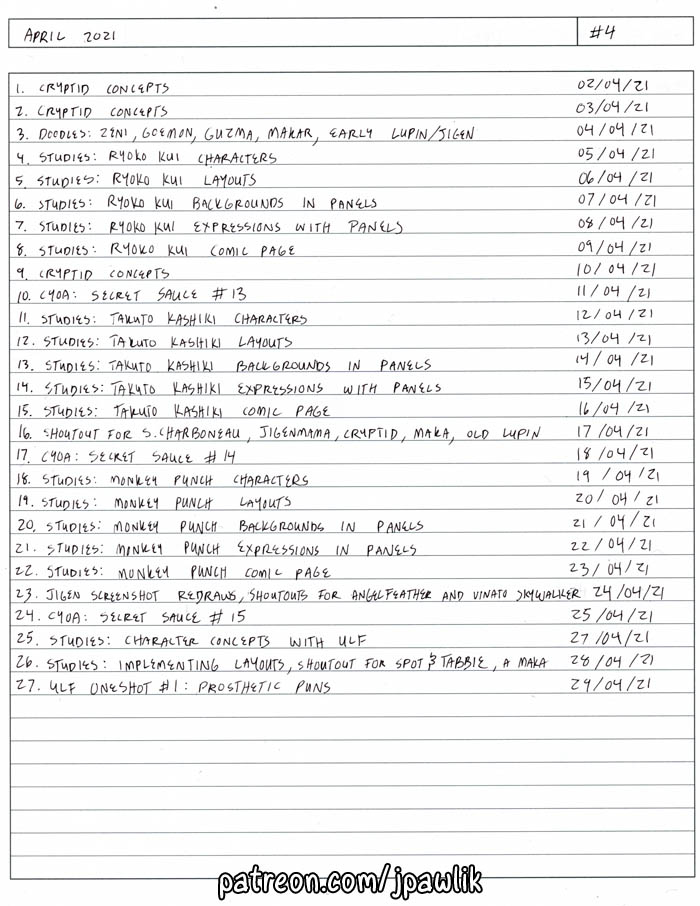 APRIL 2021 #4
1. CRYPTID CONCEPTS 02/04/21
2. CRYPTID CONCEPTS 03/04/21
3. DOODLES: ZENI, GOEMON, GUZMA, MAKAR, EARLY LUPIN/JIGEN 04/04/21
4. STUDIES: RYOKO KUI CHARACTERS 05/04/21
5. STUDIES: RYOKO KUI LAYOUTS 06/04/21
6. STUDIES: RYOKO KUI BACKGROUNDS IN PANELS 07/04/21
7. STUDIES: RYOKO KUI EXPRESSIONS WITH PANELS 08/04/21
8. STUDIES: RYOKO KUI COMIC PAGE 09/04/21
9. CRYPTID CONCEPTS 10/04/21
10. CYOA: SECRET SAUCE #13 11/04/21
11. STUDIES: TAKUTO KASHIKI CHARACTERS 12/04/21
12. STUDIES: TAKUTO KASHIKI LAYOUTS 13/04/21
13. STUDIES: TAKUTO KASHIKI BACKGROUNDS IN PANELS 14/04/21
14. STUDIES: TAKUTO KASHIKI EXPRESSIONS WITH PANELS 15/04/21
15. STUDIES: TAKUTO KASHIKI COMIC PAGE 16/04/21
16. SHOUTOUT FOR S.CHARBONEAU, JIGENMAMA, CRYPTID, MAKA, OLD LUPIN 17/04/21
17. CYOA: SECRET SAUCE #14 18/04/21
18. STUDIES: MONKEY PUNCH CHARACTERS 19/04/21
19. STUDIES: MONKEY PUNCH LAYOUTS 20/04/21
20. STUDIES: MONKEY PUNCH BACKGROUNDS IN PANELS 21/04/21
21. STUDIES: MONKEY PUNCH EXPRESSIONS IN PANELS 22/04/21
22. STUDIES: MONKEY PUNCH COMIC PAGE 23/04/21
23. JIGEN SCREENSHOT REDRAWS, SHOUTOUTS FOR ANGELFEATHER AND VINATO SKYWALKER 24/04/21
24. CYOA: SECRET SAUCE #15 25/04/21
25. STUDIES: CHARACTER CONCEPTS WITH ULF 27/04/21
26. STUDIES: IMPLEMENTING LAYOUTS, SHOUTOUT FOR SPOT & TABBIE, A MAKA 28/04/21
27. ULF ONESHOT #1: PROSTHETIC PUNS 29/04/21
patreon.com/jpawlik